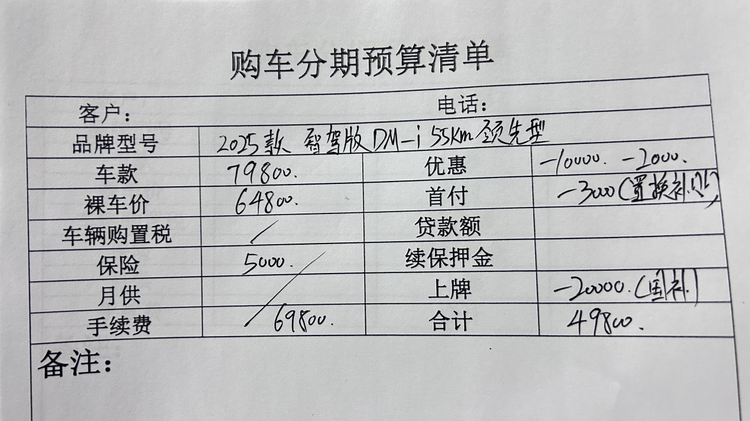 购车分期预算清单
客户: 电话:
品牌型号 2025款 智驾版 DM-i 55Km 领先型
车款 79800. 优惠 -10000. -2000.
裸车价 64800. 首付 -3000(置换补贴)
车辆购置税 / 贷款额
保险 5000. 续保押金
月供 上牌 -20000.(国补)
手续费 69800. 合计 49800.
备注: